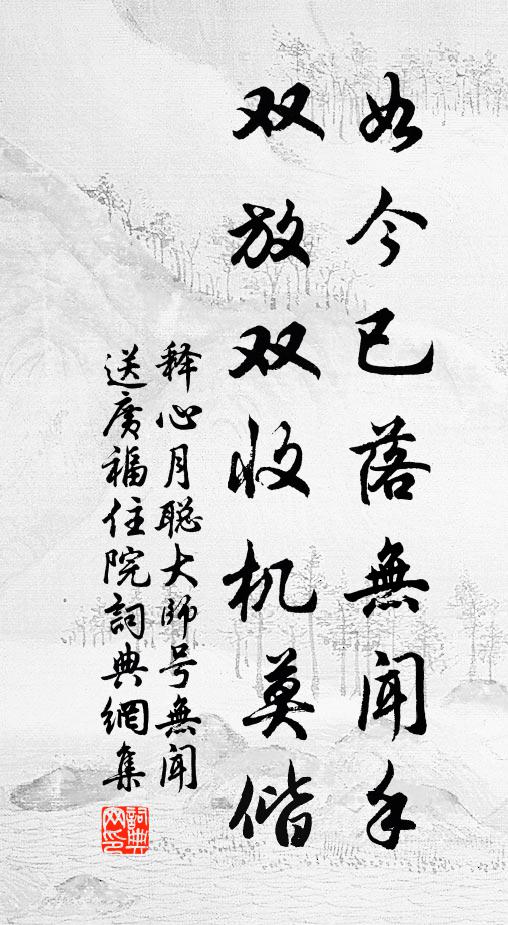 如今已落無闻手
双放双收机莫偕
释心月聪大师号無闻
送广福住院詞典網集
詞典网印